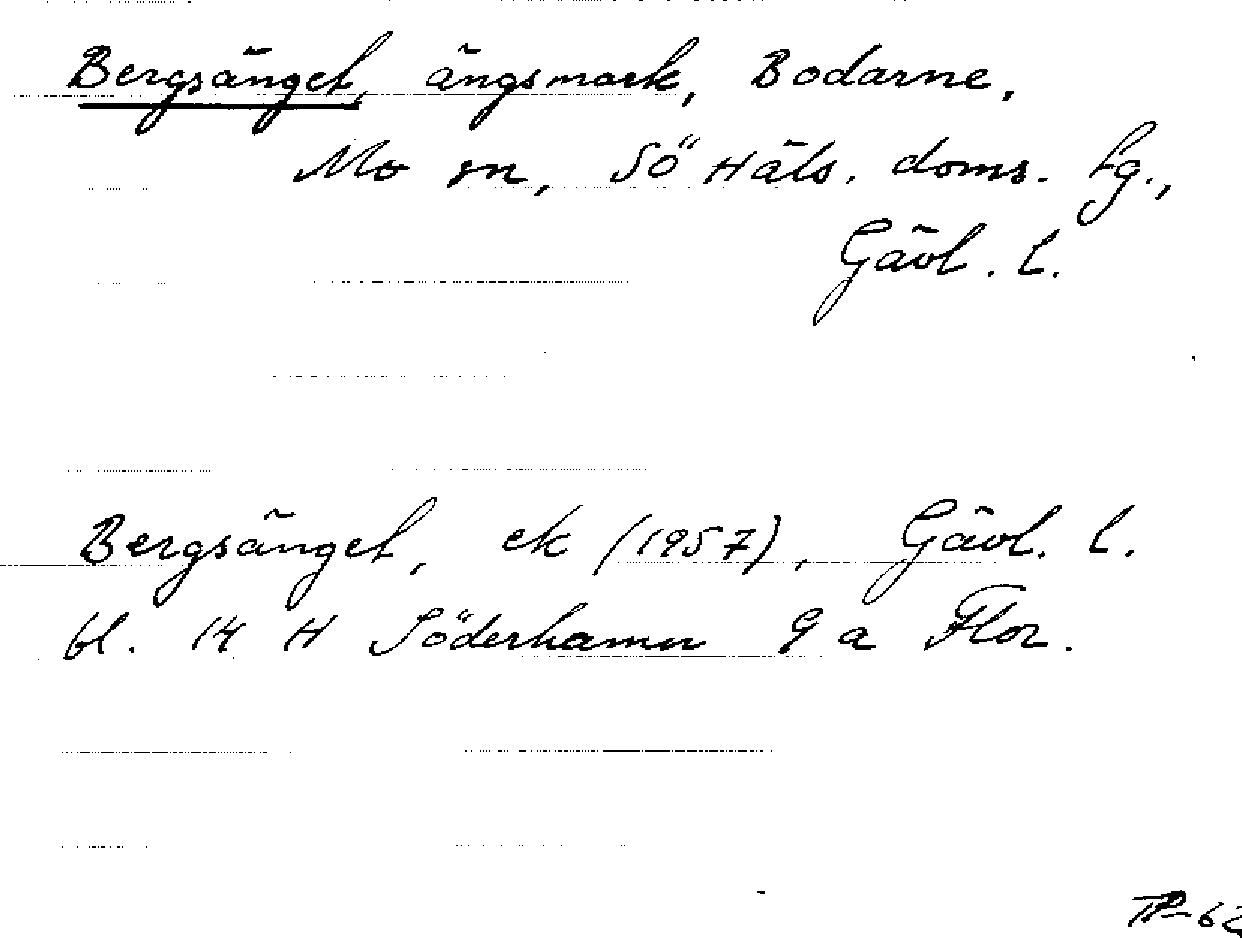 Bergsänget, ängsmark, Bodarne,
Mo sn, Sö Häls. doms. fg.,
Gävl. l.
Bergsänget, ek (1957), Gävl. l.
bl. 14 H Söderhamn 9 a Flor.
TP-62